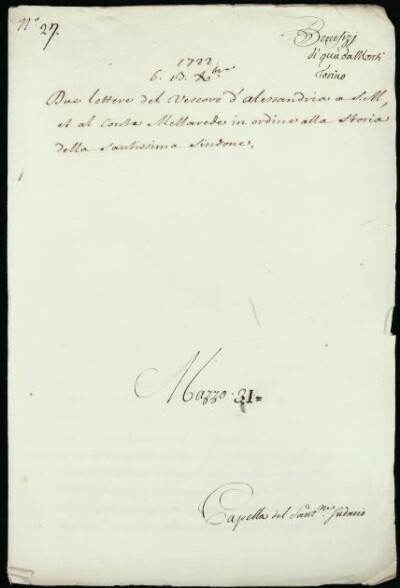 N.° 27.
Benefizj
di quà da Monti
Torino
1722
6. 13. Xbre
Due lettere del Vescovo d'Alessandria a S. M.,
et al Conte Mellarede in ordine alla Storia
della Santissima Sindone.
Mazzo. 31=
Capella del Sant.mo Sudario